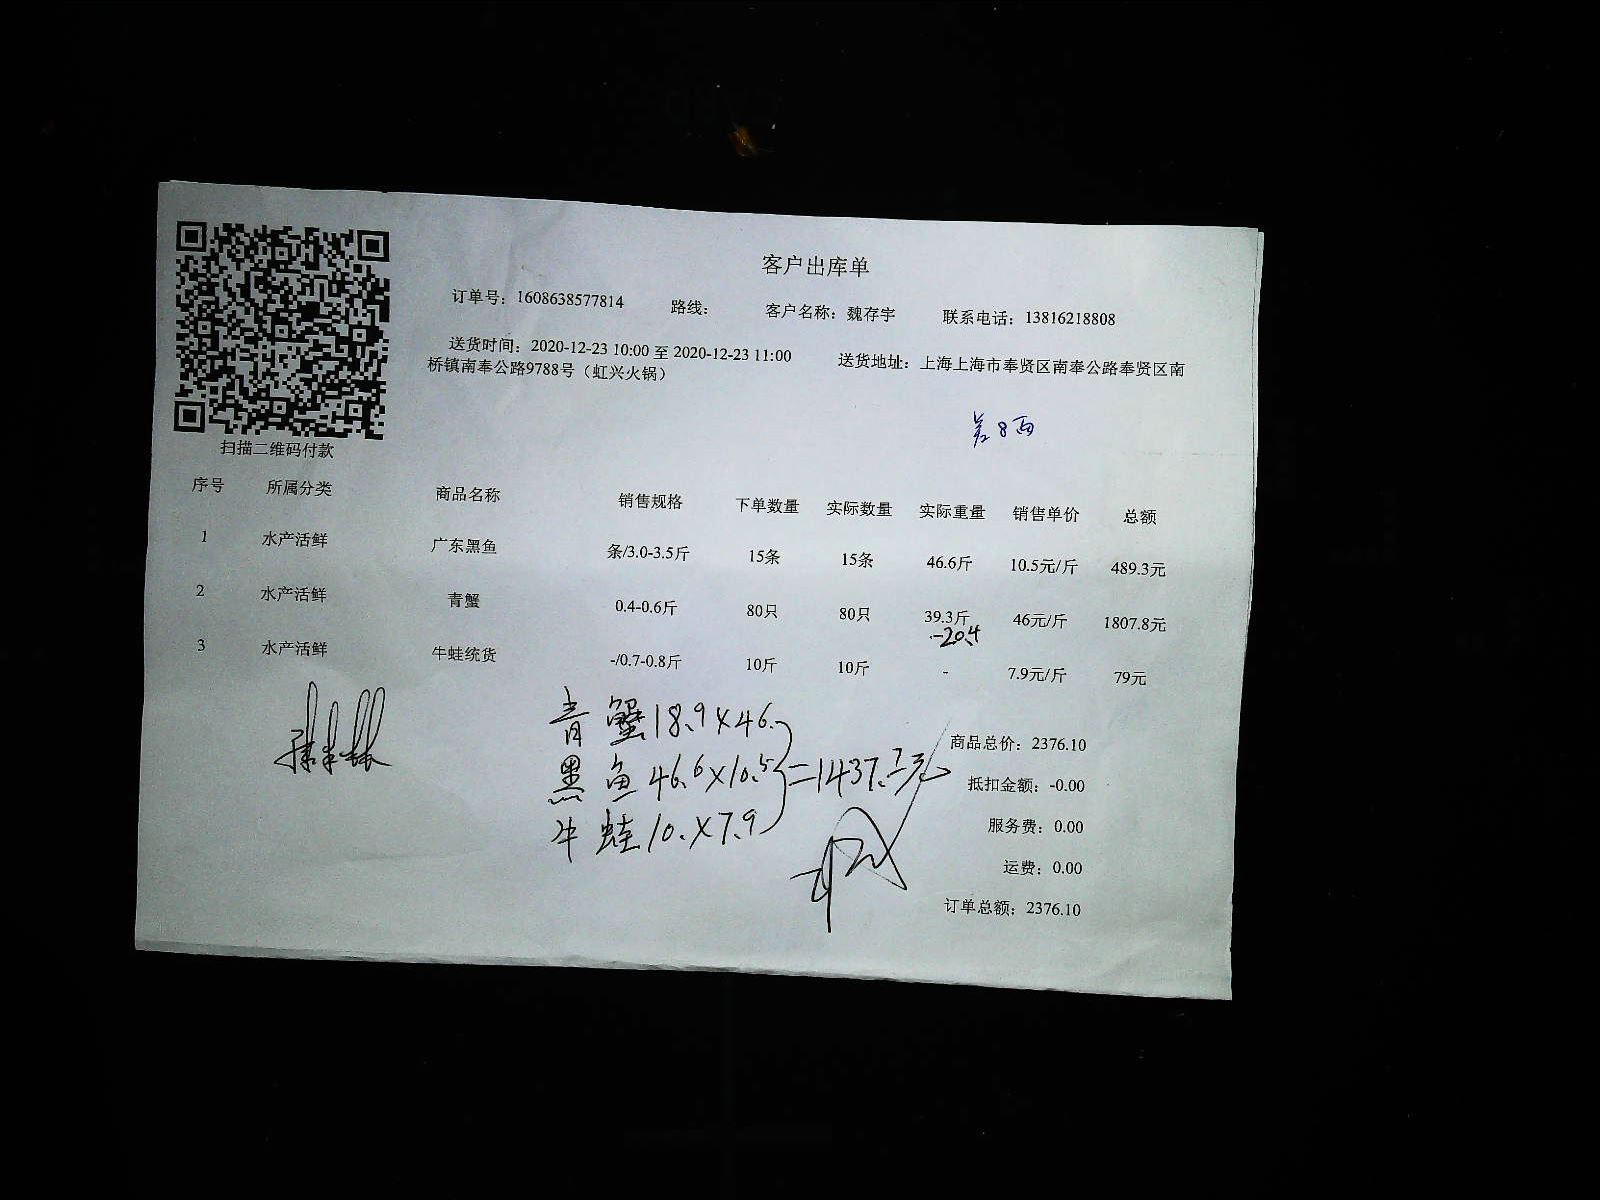 客户出库单
订单号：1608638577814 路线： 客户名称：魏存宇 联系电话：13816218808
送货时间：2020-12-23 10:00 至 2020-12-23 11:00 送货地址：上海上海市奉贤区南奉公路奉贤区南
桥镇南奉公路9788号（虹兴火锅）
扫描二维码付款
差8两
序号 所属分类 商品名称 销售规格 下单数量 实际数量 实际重量 销售单价 总额
1 水产活鲜 广东黑鱼 条/3.0-3.5斤 15条 15条 46.6斤 10.5元/斤 489.3元
2 水产活鲜 青蟹 0.4-0.6斤 80只 80只 39.3斤 46元/斤 1807.8元
-20.4
3 水产活鲜 牛蛙统货 -/0.7-0.8斤 10斤 10斤 - 7.9元/斤 79元
青蟹18.9×46.
黑鱼46.6×10.5 =1437.7元
牛蛙10.×7.9
商品总价：2376.10
抵扣金额：-0.00
服务费：0.00
运费：0.00
订单总额：2376.10